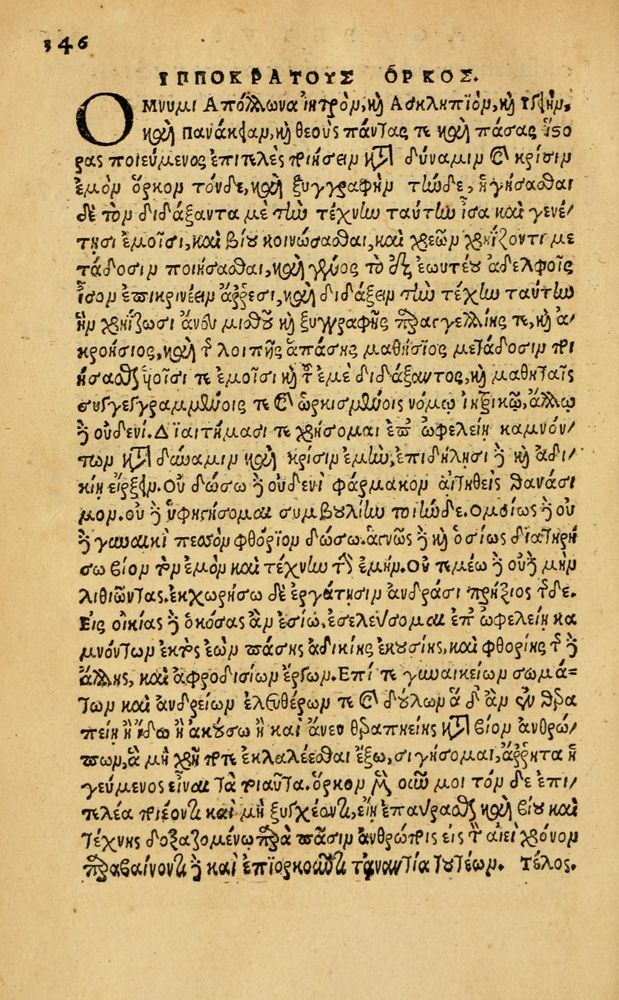 346
ΙΠΠΟΚΡΑΤΟΥΣ ΟΡΚΟΣ.
ΟΜΝΥΜΙ Απόλλωνα ἰητρὸν, καὶ Ασκληπιὸν, καὶ Υγείην,
καὶ Πανάκειαν, καὶ θεοὺς πάντας τε καὶ πάσας ἵσο
ρας ποιεύμενος ἐπιτελέα ποιήσειν κατὰ δύναμιν καὶ κρίσιν
ἐμὸν ὅρκον τόνδε, καὶ ξυγγραφὴν τήνδε, ἡγήσασθαι
δὲ τὸν διδάξαντα μὲ τὴν τέχνην ταύτην ἶσα καὶ γενέ/
τῃσι ἐμοῖσι, καὶ βίου κοινώσασθαι, καὶ χρεῶν χρηΐζοντι με
τάδοσιν ποιήσασθαι, καὶ γένος τὸ ἐξ ἑωυτέου ἀδελφοῖς
ἶσον ἐπικρινέειν ἄρρεσι, καὶ διδάξειν τὴν τέχνην ταύτην
ἢν χρηΐζωσι ἄνευ μισθοῦ καὶ ξυγγραφῆς παραγγελλίης τε, καὶ ἀ/
κροήσιος, καὶ τῆς λοιπῆς ἁπάσης μαθήσιος μετάδοσιν ποι
ήσασθαι υἱοῖσι τε ἐμοῖσι καὶ τοῦ ἐμὲ διδάξαντος, καὶ μαθηταῖς
συγγεγραμμένοις τε καὶ ὡρκισμένοις νόμῳ ἰητρικῷ, ἄλλῳ
δὲ οὐδενί. Διαιτήμασι τε χρήσομαι ἐπ' ὠφελείῃ καμνόν/
των κατὰ δύναμιν καὶ κρίσιν ἐμὴν, ἐπιδηλήσι δὲ καὶ ἀδι/
κίῃ εἴρξειν. Οὐ δώσω δὲ οὐδενὶ φάρμακον αἰτηθεὶς θανάσι
μον. οὐ δὲ ὑφηγήσομαι συμβουλίην τοιήνδε. Ομοίως δὲ οὐ
δὲ γυναικὶ πεσσὸν φθόριον δώσω. ἁγνῶς δὲ καὶ ὁσίως διατηρή
σω βίον τὸν ἐμὸν καὶ τέχνην τὴν ἐμήν. Οὐ τεμέω δὲ οὐ δὲ μὴν
λιθιῶντας. ἐκχωρήσω δὲ ἐργάτῃσιν ἀνδράσι πρήξιος τῆσδε.
Εἰς οἰκίας δὲ ὁκόσας ἂν ἐσίω, ἐσελεύσομαι ἐπ' ὠφελείῃ κα
μνόντων ἐκτὸς ἐὼν πάσης ἀδικίης ἑκουσίης, καὶ φθορίης τῆς δὲ
ἄλλης, καὶ ἀφροδισίων ἔργων. Επί τε γυναικείων σωμά=
των καὶ ἀνδρείων ἐλευθέρων τε καὶ δούλων ἃ δ' ἂν ἐν θερα
πείῃ ἢ ἴδω ἢ ἀκούσω ἢ καὶ ἄνευ θεραπηείης κατὰ βίον ἀνθρώ/
πων, ἃ μὴ χρή ποτε ἐκλαλέεσθαι ἔξω, σιγήσομαι, ἄρρητα ἡ
γεύμενος εἶναι τὰ τοιαῦτα. ὅρκον μὲν οὖν μοι τόν δε ἐπι/
τελέα ποιέοντι καὶ μὴ ξυγχέοντι, εἴη ἐπαύρασθαι καὶ βίου καὶ
τέχνης δοξαζομένῳ παρὰ πᾶσιν ἀνθρώποις εἰς τὸν ἀιεὶ χρόνον
παραβαίνοντι δὲ καὶ ἐπιορκοῦντι τἀναντία τουτέων. Τέλος.